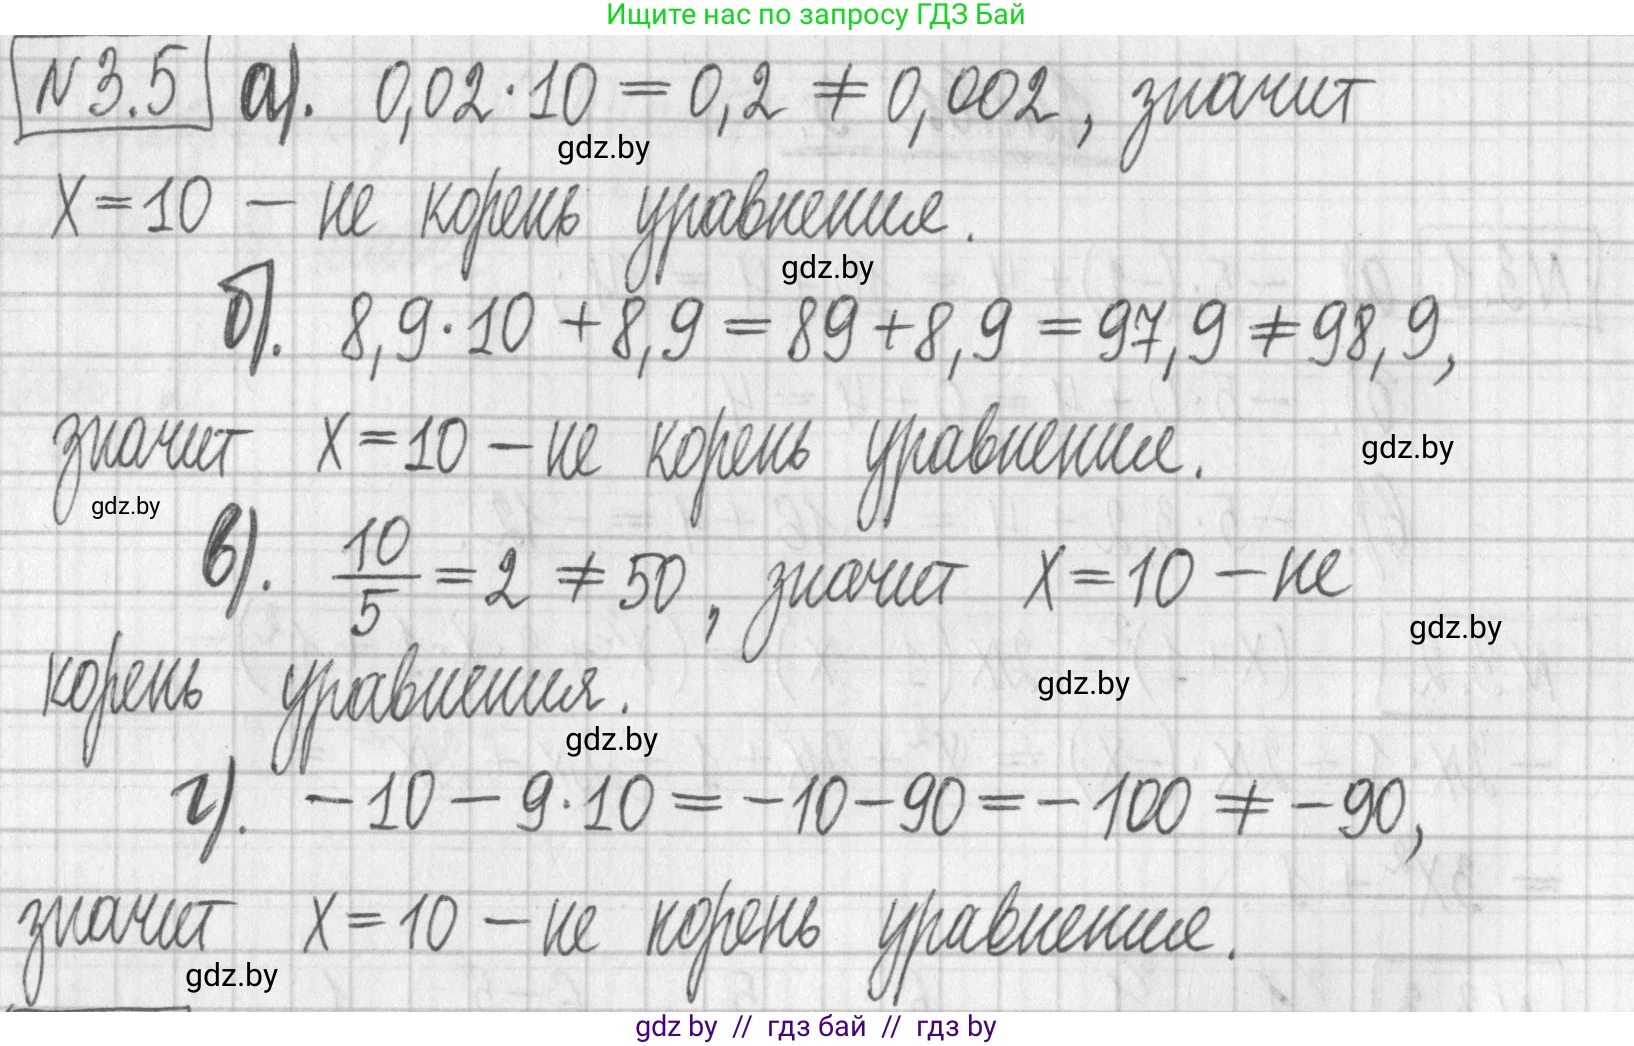 Ищите нас по запросу ГДЗ Бай
№3.5 а). 0,02·10 = 0,2 ≠ 0,002, значит
gdz.by
x=10 – не корень уравнения.
gdz.by
б). 8,9·10 + 8,9 = 89 + 8,9 = 97,9 ≠ 98,9,
значит x=10 – не корень уравнения.
gdz.by
gdz.by
в). 10/5 = 2 ≠ 50, значит x=10 – не
gdz.by
корень уравнения.
gdz.by
gdz.by
г). –10 – 9·10 = –10–90 = –100 ≠ –90,
значит x=10 – не корень уравнения.
gdz.by
gdz by // гдз бай // гдз by